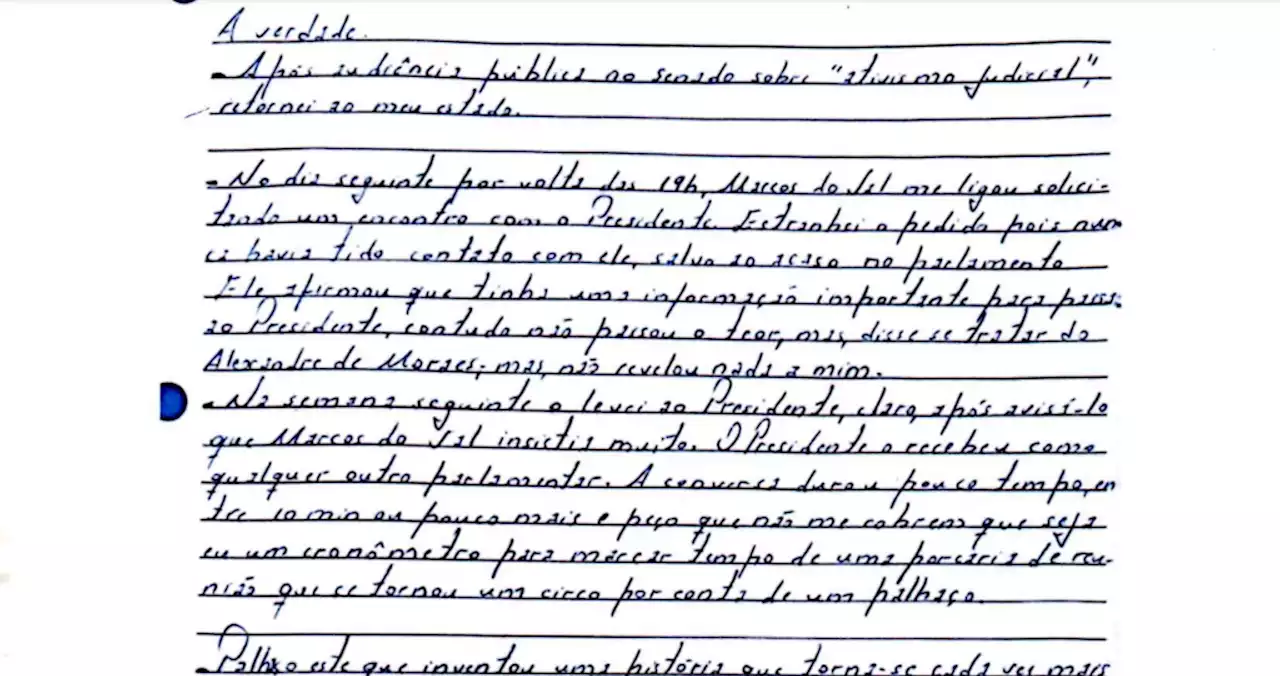 A verdade.
- Após audiência pública no senado sobre "ativismo judicial",
retornei ao meu estado.
- No dia seguinte por volta das 19h, Marcos do Val me ligou solici-
tando um encontro com o Presidente. Estranhei o pedido pois nun
ca havia tido contato com ele, salvo ao acaso no parlamento
Ele afirmou que tinha uma informação importante para pass
ao Presidente, contudo não passou o teor, mas, disse se tratar do
Alexandre de Moraes; mas, não revelou nada a mim.
- Na semana seguinte o levei ao Presidente, claro, após avisá-lo
que Marcos do Val insistia muito. O Presidente o recebeu como
qualquer outro parlamentar. A conversa durou pouco tempo, en
tre 10 min ou pouco mais e peço que não me cobrem que seja
eu um cronômetro para marcar tempo de uma porcaria de reu-
nião que se tornou um circo por conta de um palhaço.
- Palhaço este que inventou uma história que torna-se cada ves mais